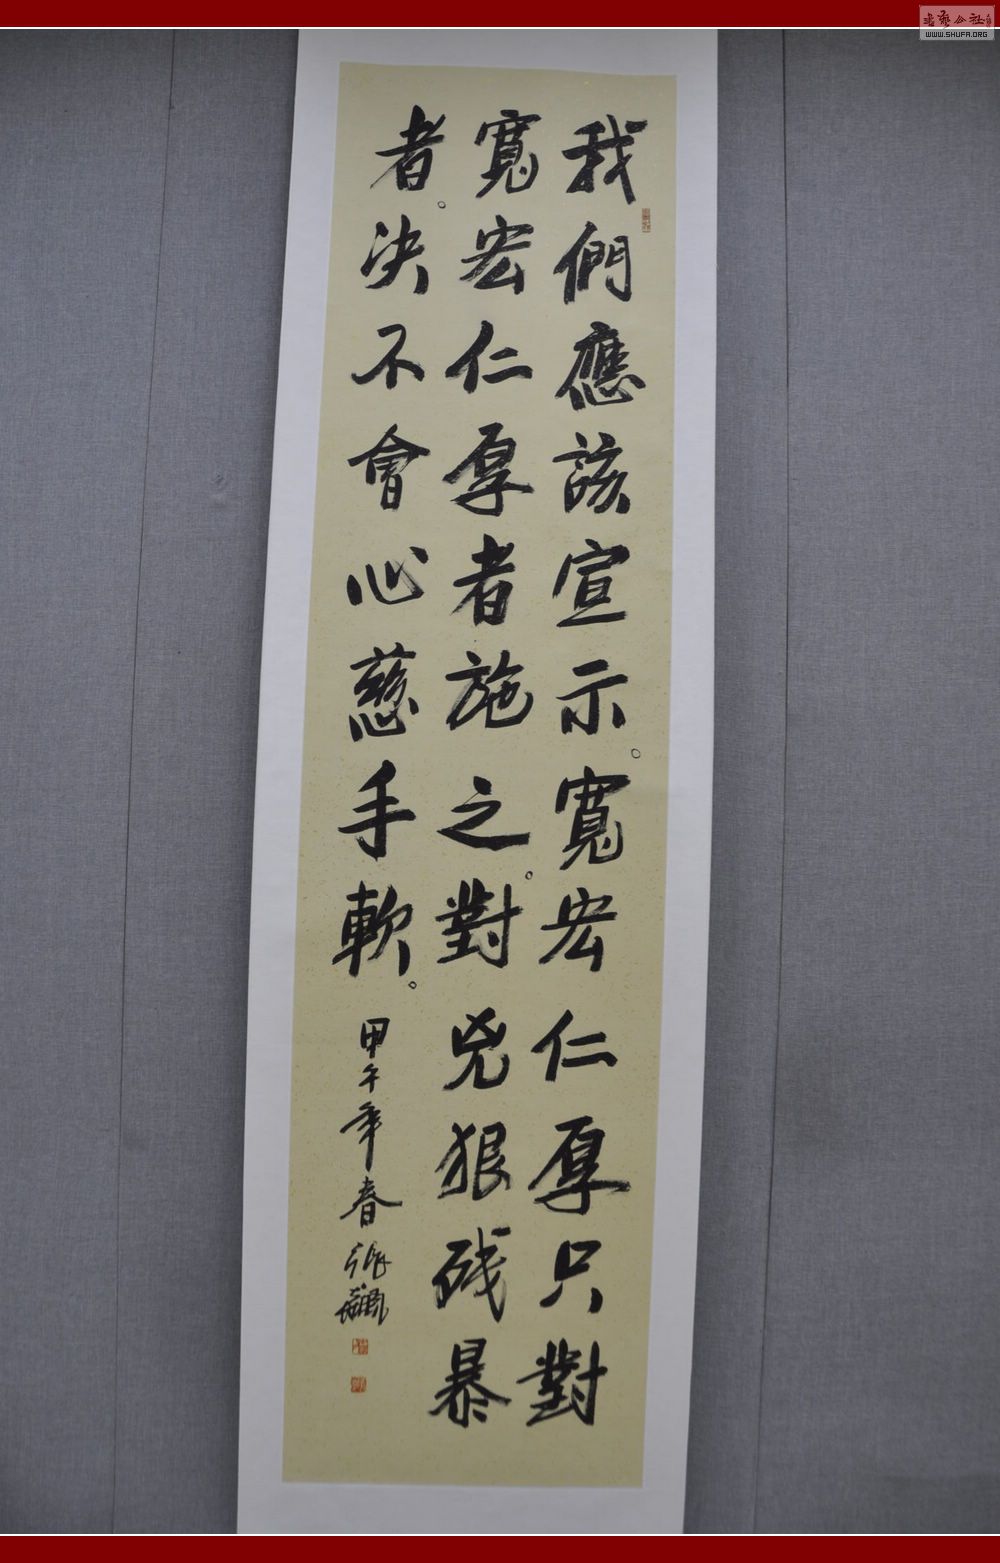 我們應該宣示。寬宏仁厚只對
寬宏仁厚者施之。對兇狠残暴
者。决不會心慈手軟。
甲午年春張飈
WWW.SHUFA.ORG